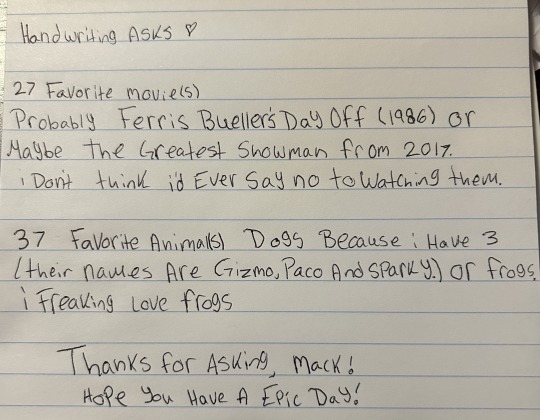 Handwriting Asks ♡
27 Favorite movie(s)
Probably Ferris Bueller's Day Off (1986) or
Maybe the Greatest Showman from 2017.
i Don't think i'd Ever Say no to Watching them.
37 Favorite Animal(s) Dogs Because i Have 3
(their names Are Gizmo, Paco And Sparky.) or frogs.
i Freaking Love frogs
Thanks for Asking, Mack!
Hope You Have A Epic Day!